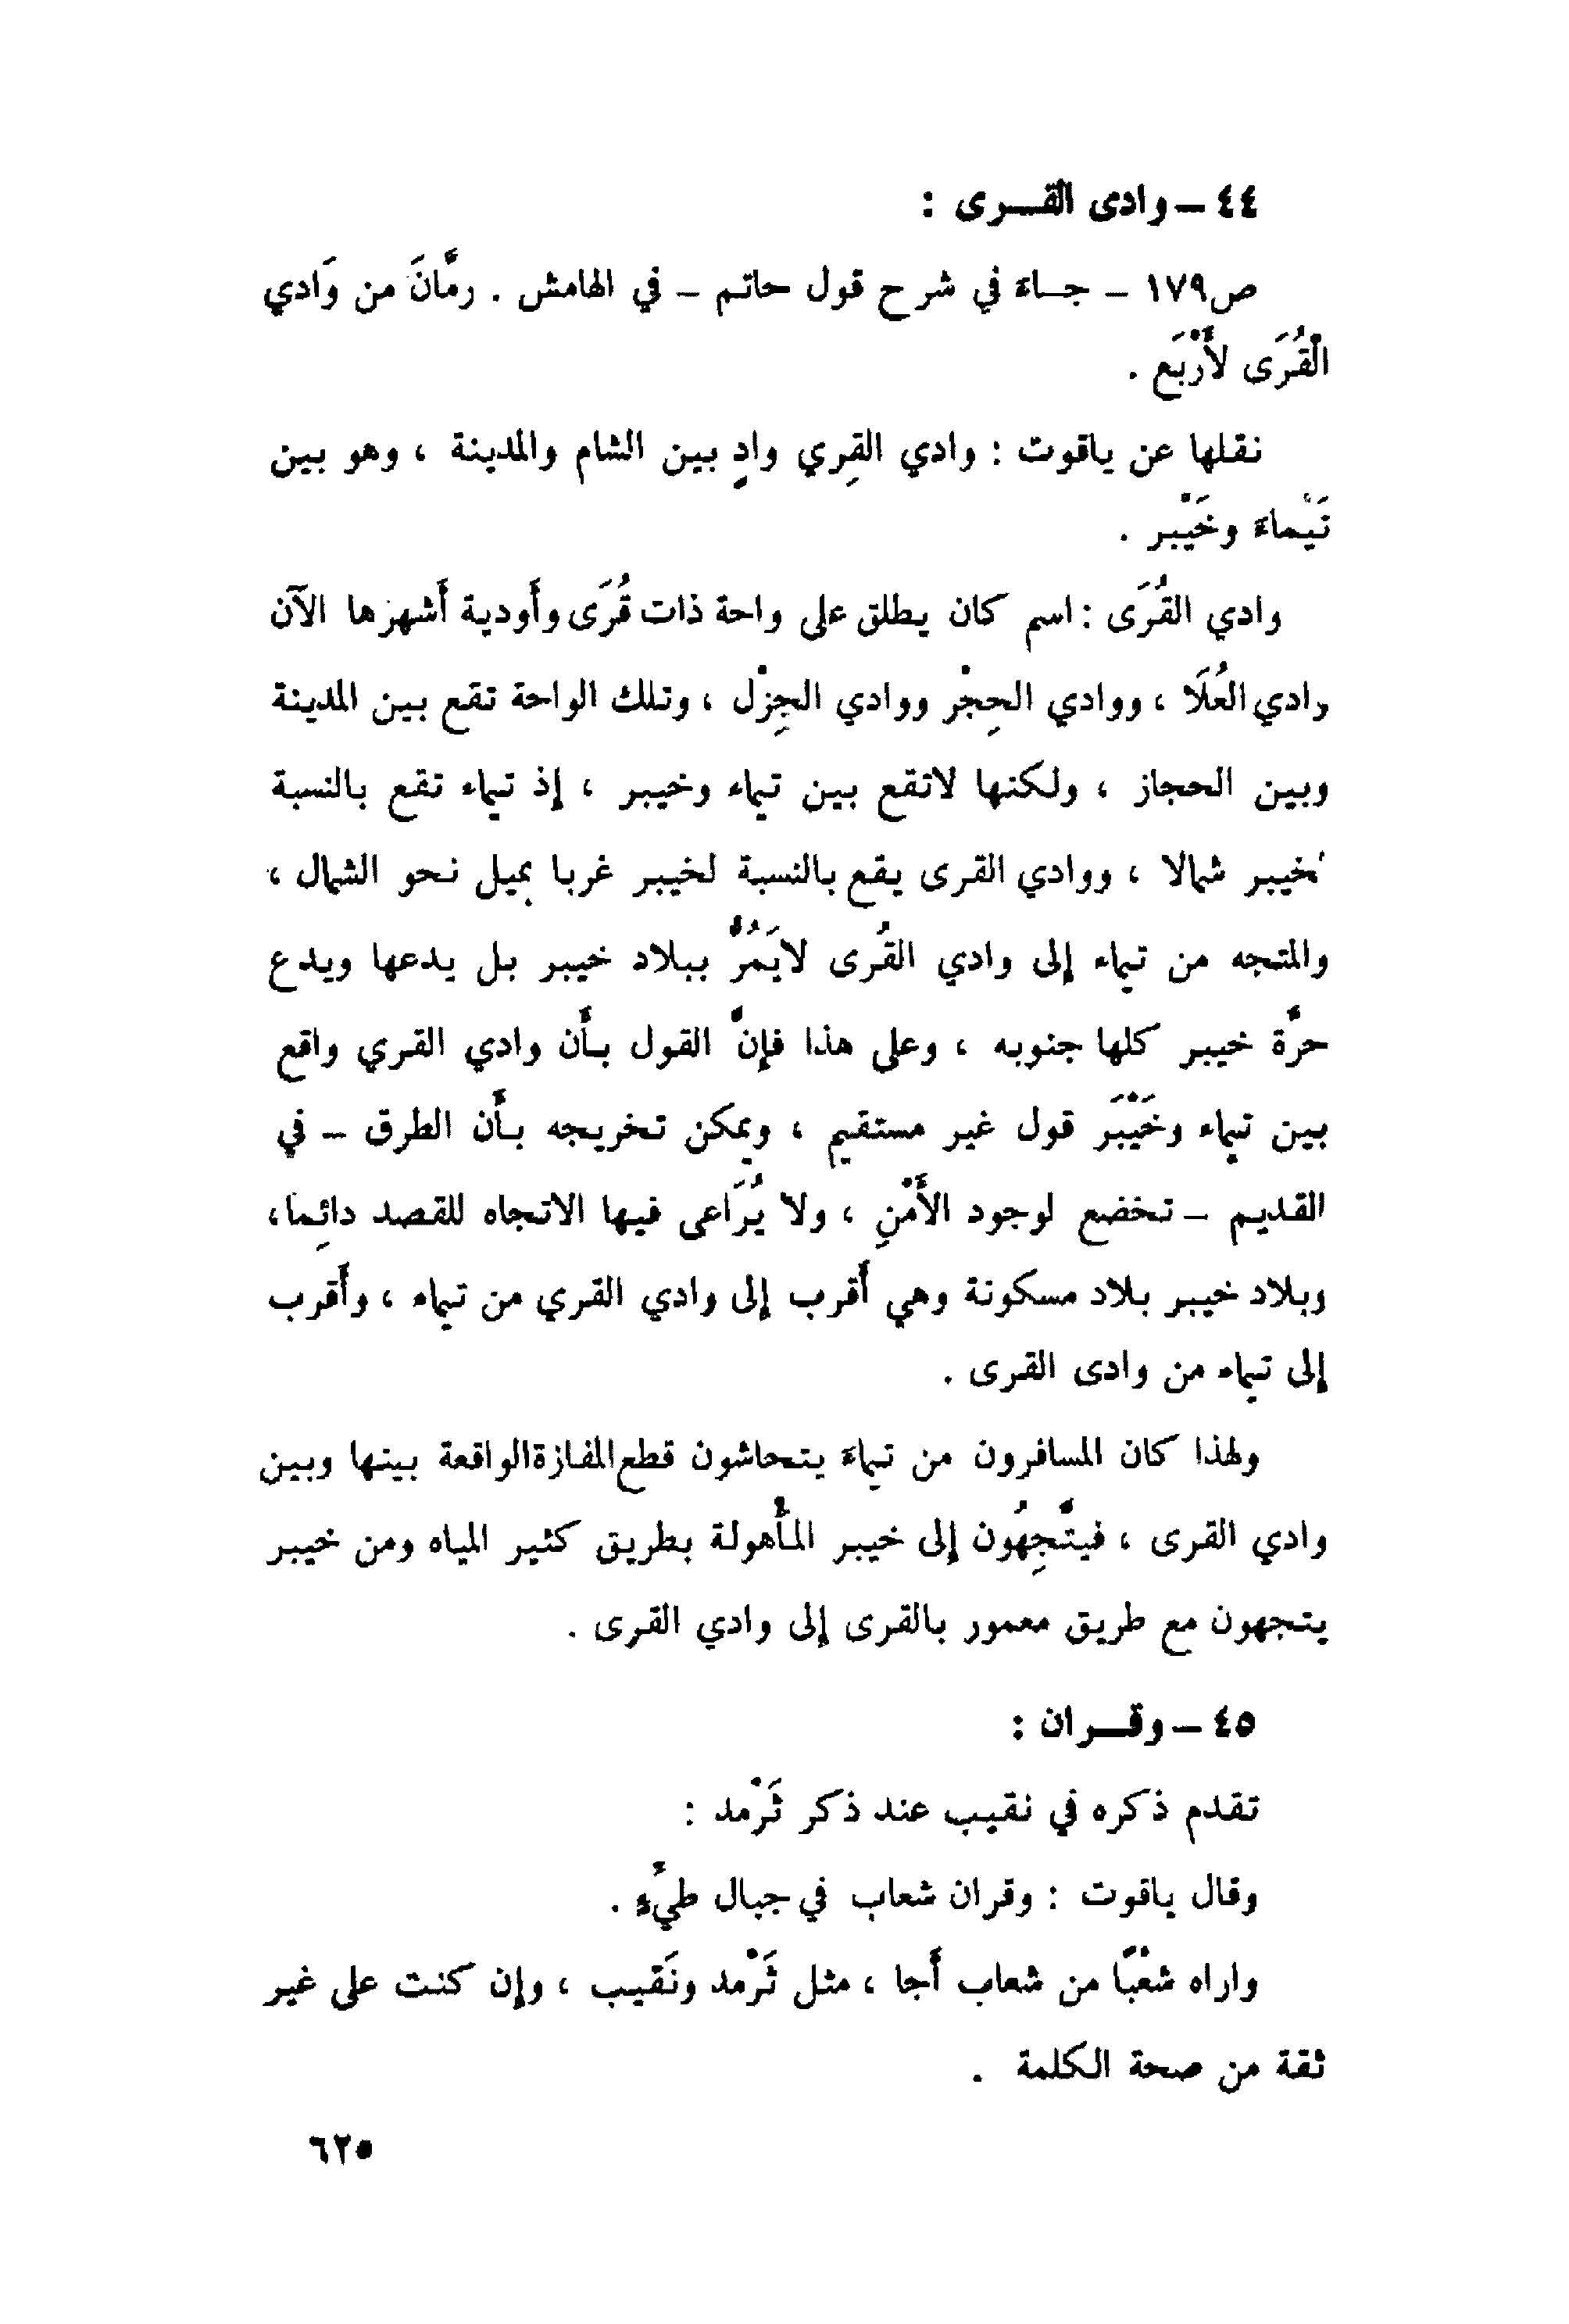 ٤٤ ــ وادى القـــرى :
ص١٧٩ ــ جــاءَ في شرح قول حاتـم ــ في الهامش . رمَّانَ من وَادي
الْقُرَى لأَرْبَع .
نقلها عن ياقوت : وادي القِري وادٍ بين الشام والمدينة ، وهو بين
تَيْماءَ وخَيْبر .
وادي القُرَى : اسم كان يطلق على واحة ذات قُرَى وأَودية أَشهرها الآن
وادي العُلَا ، ووادي الحِجْر ووادي الجِزْل ، وتلك الواحة تقع بين المدينة
وبين الحجاز ، ولكنها لاتقع بين تيماء وخيبر ، إذ تيماء تقع بالنسبة
لخيبر شمالا ، ووادي القرى يقع بالنسبة لخيبر غربا بميل نحو الشمال ،
والمتجه من تيماء إلى وادي القُرى لايَمُرُّ ببلاد خيبر بل يدعها ويدع
حرَّة خيبر كلها جنوبه ، وعلى هذا فإنَّ القول بـأَن وادي القري واقع
بين تيماء وخَيْبَر قول غير مستقيم ، ويمكن تخريجه بـأَن الطرق ــ في
القديم ــ تخضع لوجود الأَمْنِ ، ولا يُرَاعى فيها الاتجاه للقصد دائِما،
وبلاد خيبر بلاد مسكونة وهي أَقرب إلى وادي القري من تيماء ، وأَقرب
إلى تيماء من وادى القرى .
ولهذا كان المسافرون من تيماءَ يتحاشون قطع المفازة الواقعة بينها وبين
وادي القرى ، فيتَّجِهُون إلى خيبر المـأْهولة بطريق كثير المياه ومن خيبر
يتجهون مع طريق معمور بالقرى إلى وادي القرى .
٤٥ ــ وقــران :
تقدم ذكره في نقيب عند ذكر ثَرْمد :
وقال ياقوت : وقران شعاب في جبال طيِّءٍ .
واراه شعْبًا من شعاب أَجا ، مثل ثَرْمد ونَقيب ، وإن كنت على غير
ثقة من صحة الكلمة .
٦٢٥